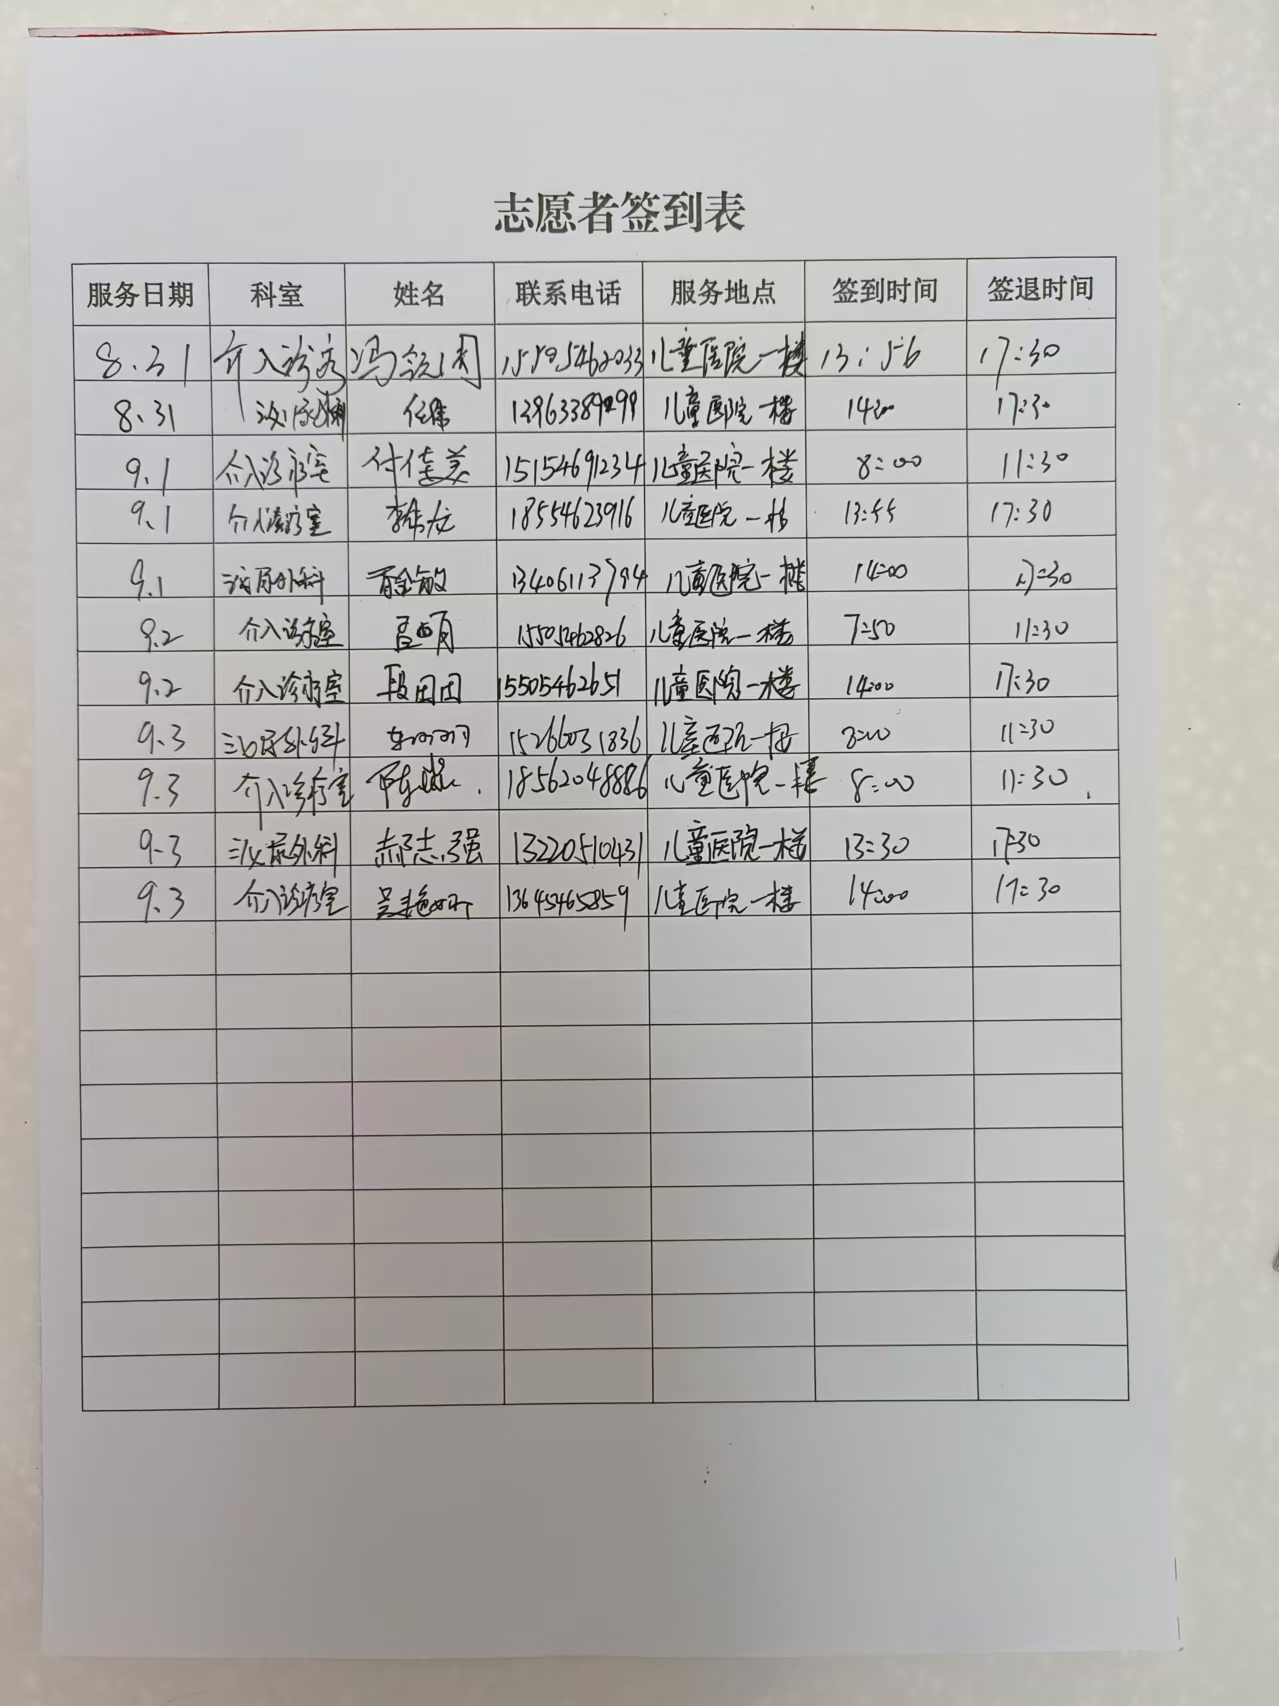 志愿者签到表
服务日期 科室 姓名 联系电话 服务地点 签到时间 签退时间
8.31 介入诊疗 冯 儿童医院一楼 13:56 17:30
8.31 儿童医院一楼 14:00 17:30
9.1 介入诊疗室 付佳美 15154691234 儿童医院一楼 8:00 11:30
9.1 介入诊疗室 李 18554623916 儿童医院一楼 13:55 17:30
9.1 泌尿外科 敏 儿童医院一楼 14:00 17:30
9.2 介入诊疗室 15505462826 儿童医院一楼 7:50 11:30
9.2 介入诊疗室 段田田 15505462651 儿童医院一楼 14:00 17:30
9.3 泌尿外科 15266031836 儿童医院一楼 8:00 11:30
9.3 介入诊疗室 18562048886 儿童医院一楼 8:00 11:30
9.3 泌尿外科 郝志强 13220510431 儿童医院一楼 13:30 17:30
9.3 介入诊疗室 吴艳 13645465859 儿童医院一楼 14:00 17:30